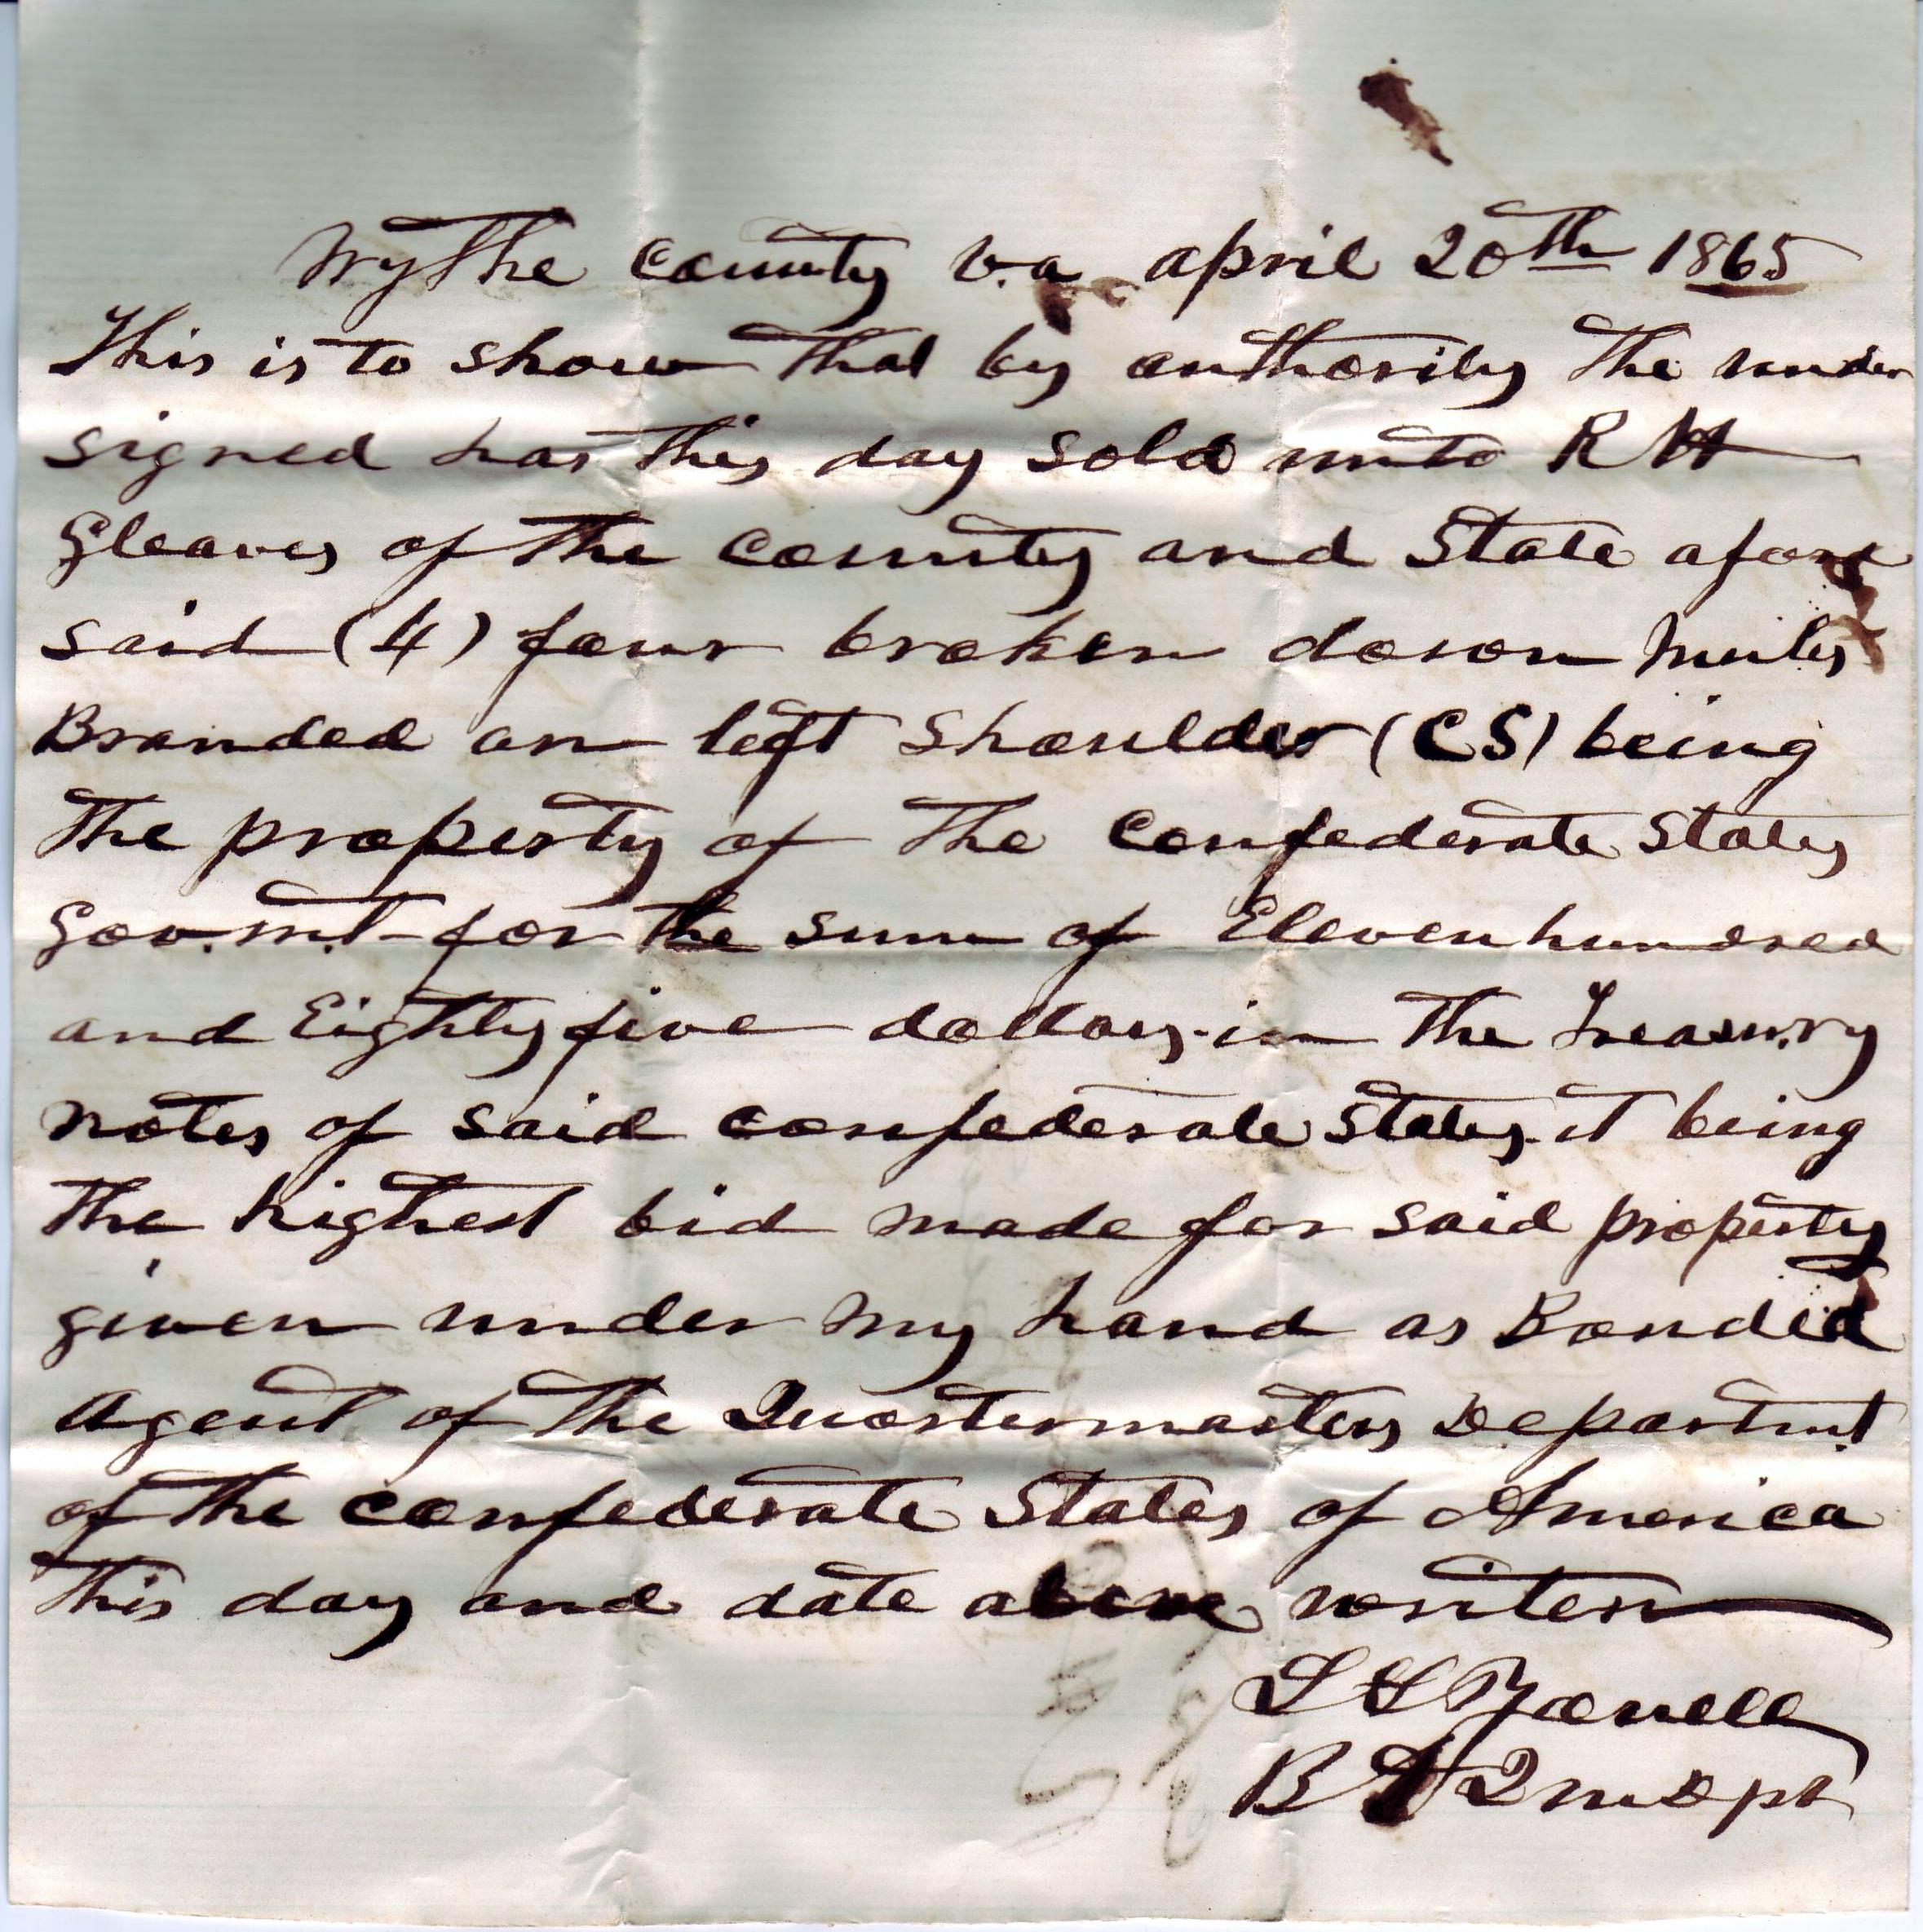 Wythe county v.a april 20th 1865
This is to show that by authority the under
signed has this day sold unto R H
Gleaves of the county and State afore
said (4) four broken down Mules
Branded on left Shoulder (CS) being
the property of the Confederate States
Gov.m.t for the sum of Eleven hundred
and Eighty five dollars in the Treasury
notes of said confederate States it being
the highest bid made for said property
given under my hand as Bonded
Agent of the Quartermasters Departm.t
of the confederate States of America
this day and date above writen
B A Q M Dpt